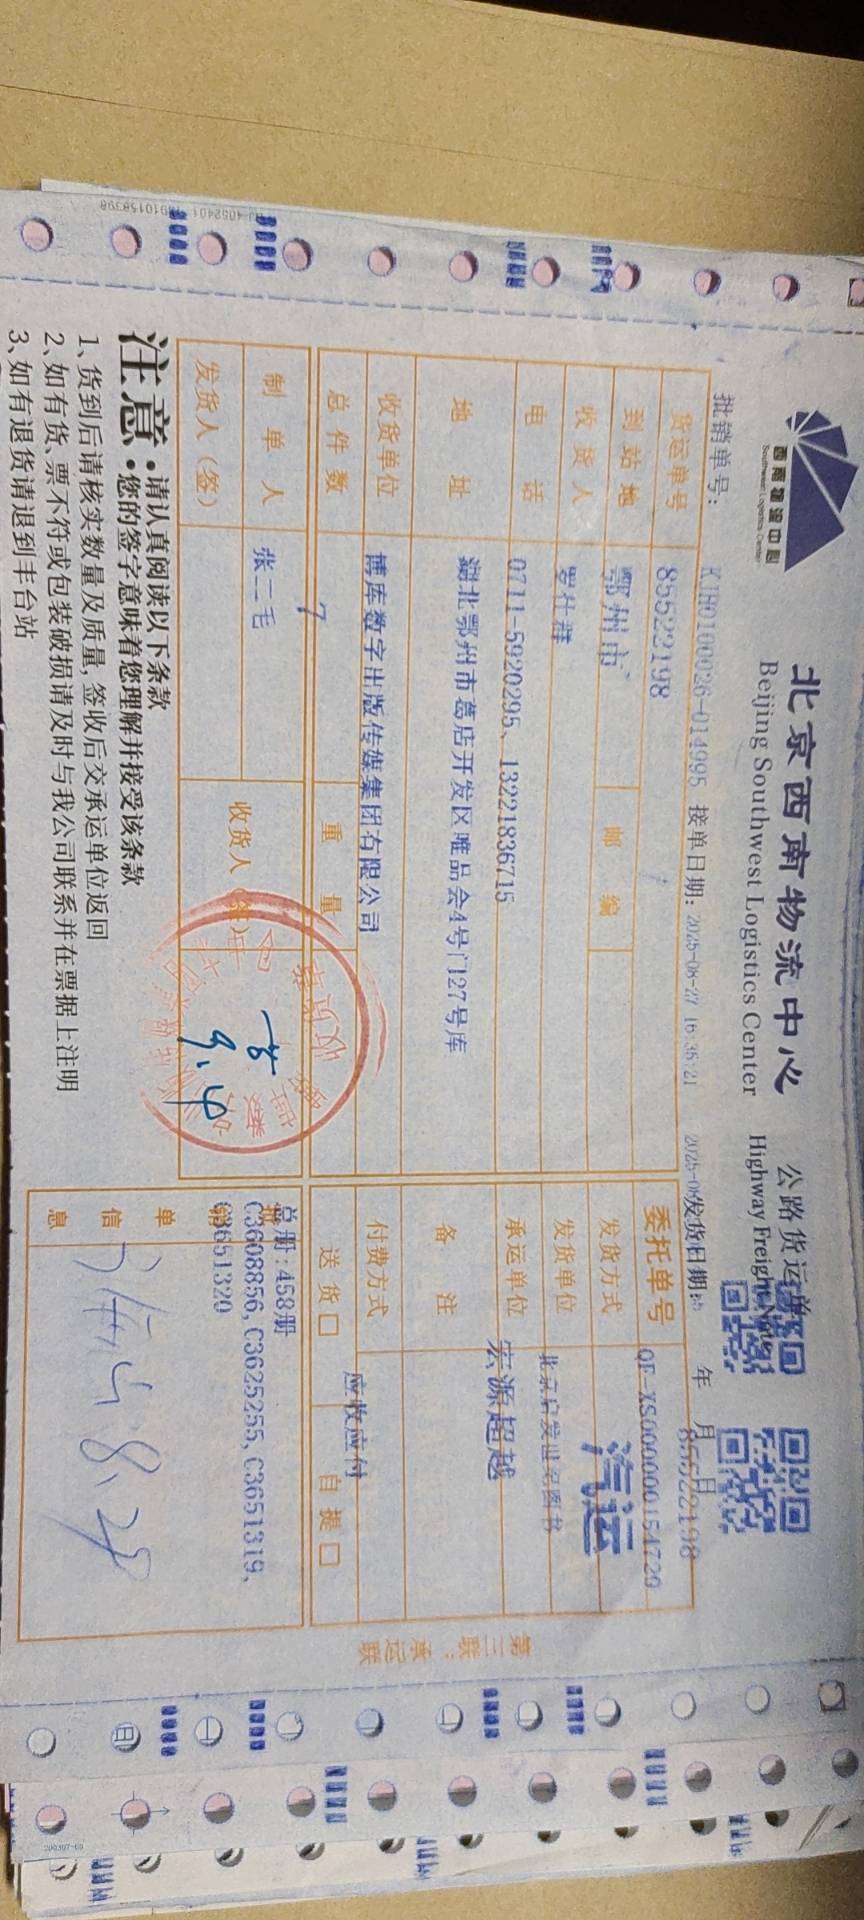 西南物流中心
Southwest Logistics Center
北京西南物流中心 公路货运单
Beijing Southwest Logistics Center Highway Freight Note
批销单号: KJH0100026-014995 接单日期: 2025-08-27 16:35:21 发货日期: 年 月 日
85522198
货运单号 85522198 委托单号 QF-XS0000000154720
到站地 鄂州市 邮编 发货方式 汽运
收货人 罗仕群 发货单位
电话 0711-5920295、13221836715 承运单位 宏源超越
地址 湖北鄂州市葛店开发区唯品会4号门27号库 备注
收货单位 博库数字出版传媒集团有限公司 付费方式 应收应付
总件数 7 重量 送货□ 自提□
制单人 张二毛 收货人(签)
发货人(签)
9.4
总册:458册
C3608856,C3625255,C3651319,
C3651320
批销单信息
8.28
第三联:承运联
注意:请认真阅读以下条款
您的签字意味着您理解并接受该条款
1、货到后请核实数量及质量,签收后交承运单位返回
2、如有货、票不符或包装破损请及时与我公司联系并在票据上注明
3、如有退货请退到丰台站